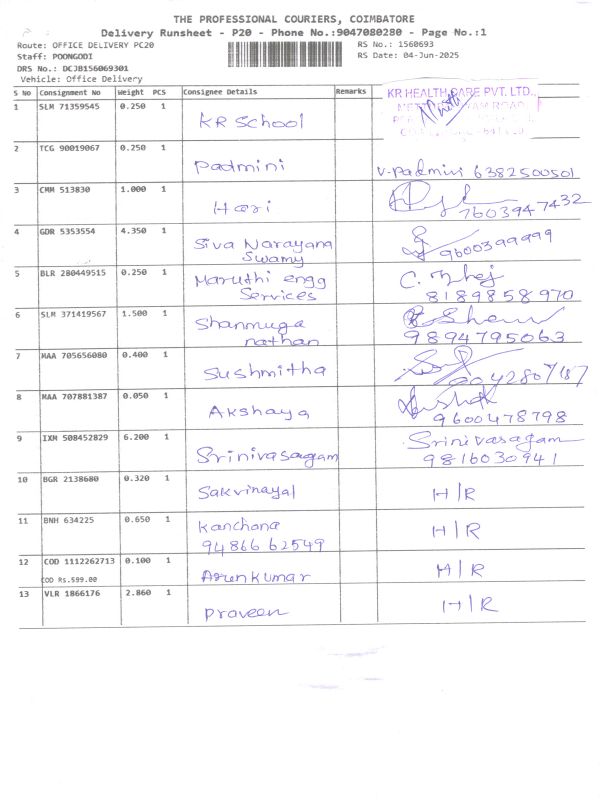 THE PROFESSIONAL COURIERS, COIMBATORE
Delivery Runsheet - P20 - Phone No.:9047080280 - Page No.:1
Route: OFFICE DELIVERY PC20
RS No.: 1560693
Staff: POONGODI
RS Date: 04-Jun-2025
DRS No.: DCJB156069301
Vehicle: Office Delivery
S No Consignment No Weight PCS Consignee Details Remarks
KR HEALTH CARE PVT. LTD.,
1 SLM 71359545 0.250 1 KR School
2 TCG 90019067 0.250 1 Padmini V-Padmini 6382500501
3 CMM 513830 1.000 1 Hari 7603947432
4 GDR 5353554 4.350 1 Siva Narayana
Swamy 9600399999
5 BLR 280449515 0.250 1 Maruthi engg
Services 8189858970
6 SLM 371419567 1.500 1 Shanmuga
nathan 9894795063
7 MAA 705656080 0.400 1 Sushmitha
8 MAA 707881387 0.050 1 Akshaya 9600478798
9 IXM 508452829 6.200 1 Srinivasagam Srinivasagam
9816030941
10 BGR 2138680 0.320 1 Sakvinayal H|R
11 BNH 634225 0.650 1 Kanchana H|R
94866 62549
12 COD 1112262713 0.100 1 Arunkumar H|R
COD Rs.599.00
13 VLR 1866176 2.860 1 Praveen H|R